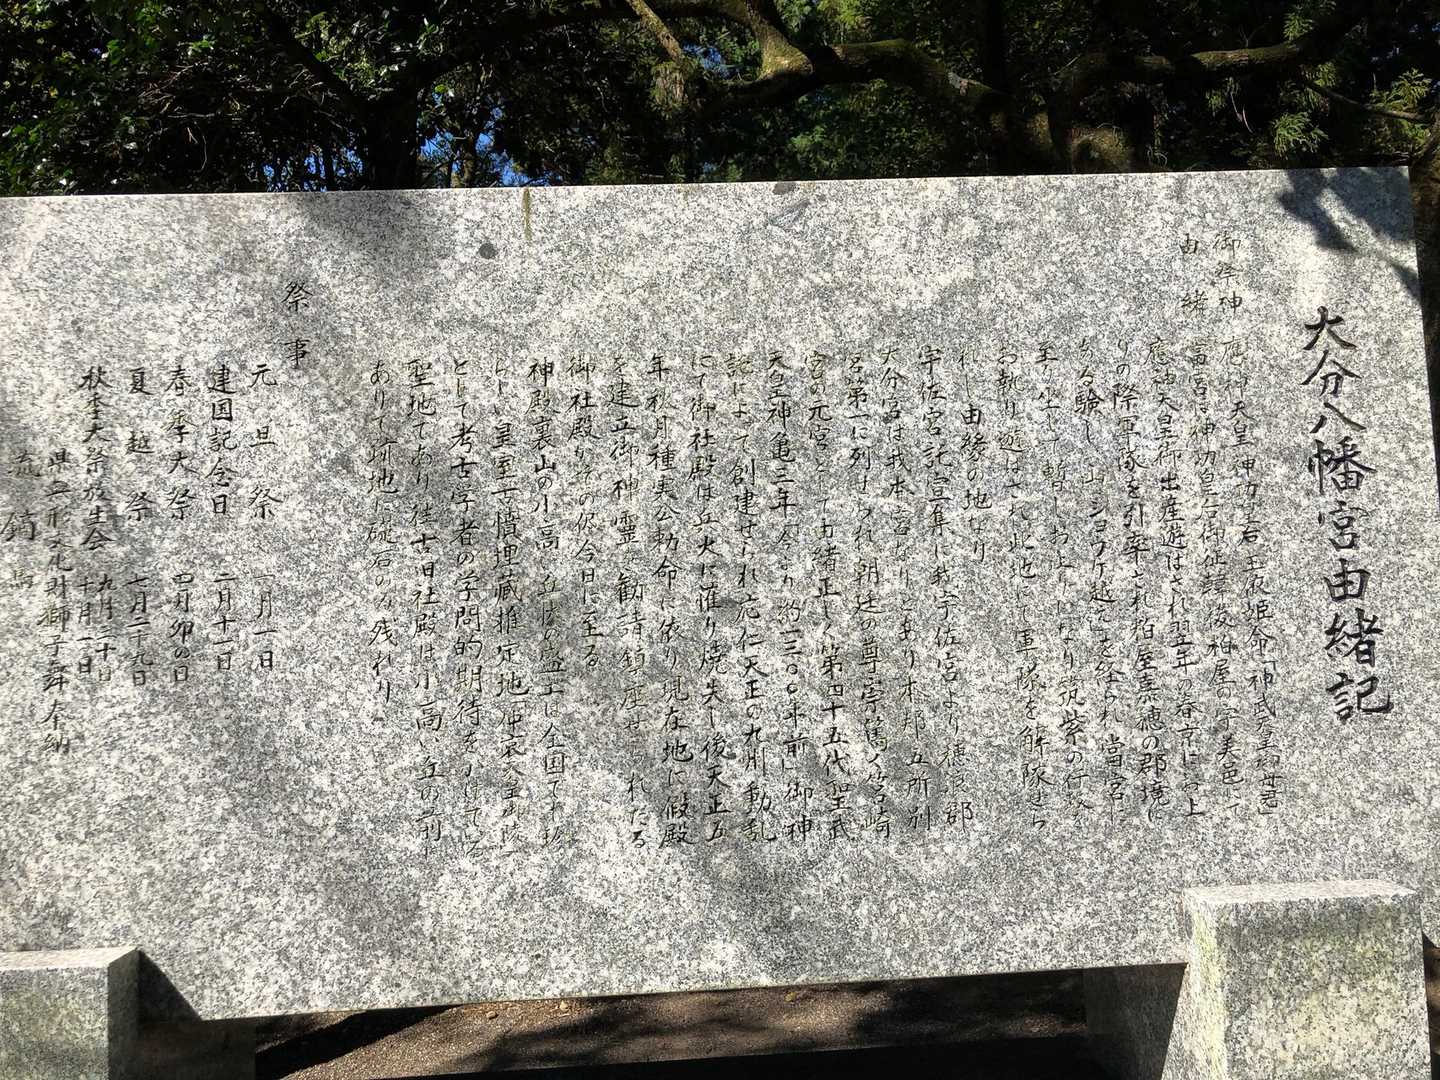 大分八幡宮由緒記
御祭神 應神天皇 神功皇后 玉依姫命「神武天皇の母君」
由緒 當宮は神功皇后御征韓後粕屋の宇美邑にて
應神天皇御出産遊ばされ翌年の春京にお上
りの際軍隊を引率され粕屋嘉穂の郡境に
ある験し山ショウケ越えを経られ當宮に
至り坐して暫しお止りになり筑紫の行政を
お執り遊ばされ此地にて軍隊を解隊せら
れし由緒の地なり
宇佐宮託宣集に我宇佐宮より穂波郡
大分宮は我本宮なりとあり本邦五所別
宮第一に列せられ朝廷の尊崇篤く筥崎
宮の元宮として由緒正しく第四十五代聖武
天皇神亀三年今より約一三〇〇年前に御神
託によって創建せられ応仁天正の九州動乱
にて御社殿は兵火に罹り焼失し後天正五
年秋月種実公勅命に依り現在地に假殿
を建立御神霊を勧請鎮座せられたる
御社殿がその侭今日に至る
神殿裏山の小高い丘陵の盛土は全国でも珍
らしい皇室古墳埋蔵推定地「仲哀天皇御陵」
として考古学者の学問的期待をかけている
聖地であり往古旧社殿は小高い丘の前に
ありて現地に礎石のみ残れり
祭事
元旦祭 一月一日
建国記念日 二月十一日
春季大祭 四月卯の日
夏越祭 七月二十九日
秋季大祭放生会 九月三十日 十月一日
県無形文化財獅子舞奉納
流鏑馬